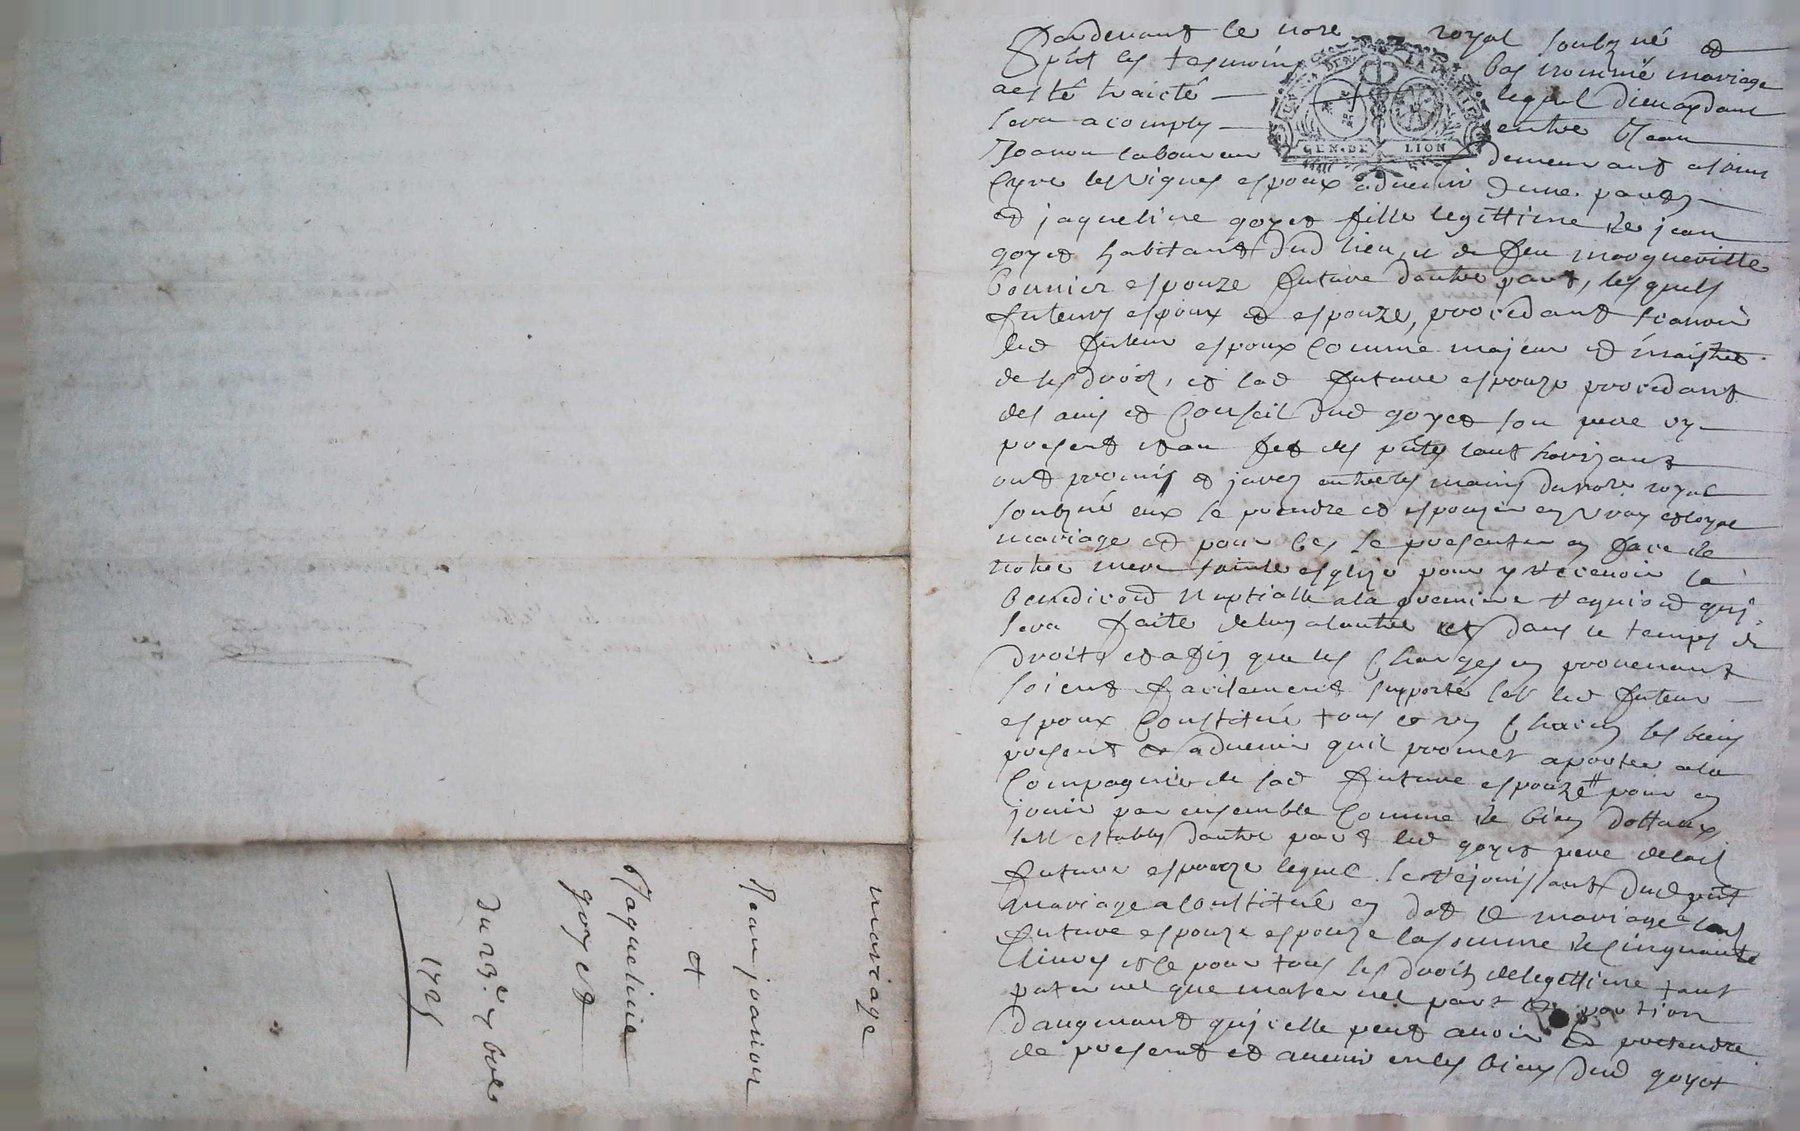 mariage
Jean joanon
et
Jaqueline
goyet
du 23e 8bre
1725
Pardevant le nore royal soubzné et
pnt les tesmoins bas nommé mariage
a esté traicté lequel dieu aydant
sera acomply entre Jean
Joanon laboureur demeurant a saint
Cyre les vignes espoux advenir d'une part
et jaqueline goyet fille legittime de jean
goyet habitant dud lieu, et de feu
espouze future dautre part, lesquels
futeurs espoux et espouze, procedant scavoir
led futeur espoux comme majeur et maistre
de ses droitz, et lad future espouze procedant
des avis et conseil dud goyet son pere cy
present et au fet des pntes lauthorizant
ont promis et jurez entre les mains du nore royal
soubzné eux se prendre et espouzer en vray et loyal
mariage et pour ces se presenter en face de
notre mere sainte esglize pour y recevoir la
benedicond nuptialle a la premiere requiond qui
sera faite de lun a lautre et dans le temps de
droits et afin que les charges en provenant
soient facilement supporté led futeur
espoux constitué tous et un chacun ses biens
present et advenir quil promet aporter a la
compagnie de lad future espouze # pour en
jouir par ensemble comme de biens dottaux
establys dautre part led goyet pere de lad
future espouze lequel se rejouissant dud pnt
mariage a constitué en dot et mariage a lad
future espouze espouze la somme de cinquante
livres et ce pour tous ses droitz de legittime tant
paternel que maternel part et portion
daugmant quicelle peut avoir et pretendre
de present et avenir en les biens dud goyet
GEN. DE LION